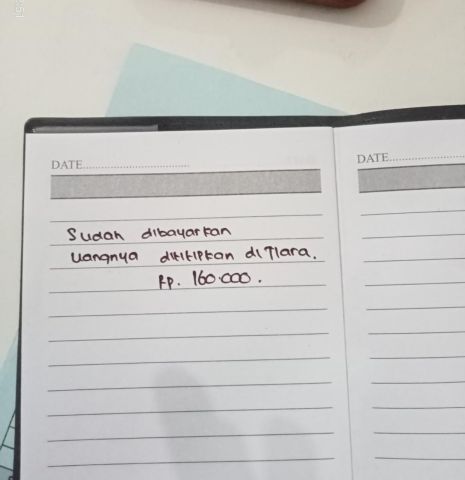 DATE
DATE
Sudah dibayarkan
Uangnya dititipkan di Tiara.
Rp. 160.000.